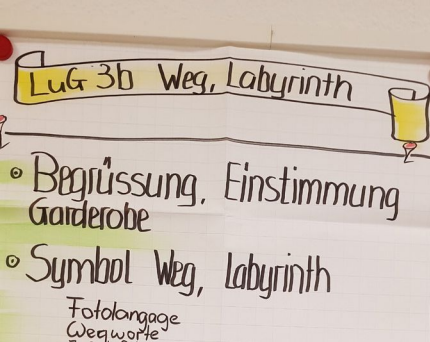 LuG 3b Weg, Labyrinth
Begrüssung, Einstimmung
Garderobe
Symbol Weg, Labyrinth
Fotolangage
Wegworte